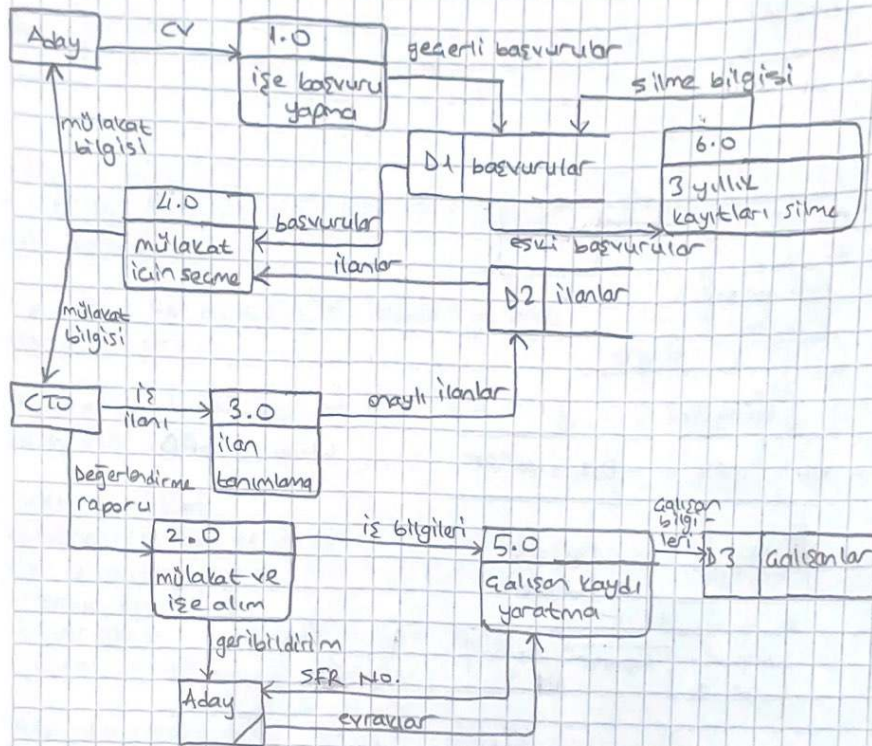 Aday
CV
1.0
işe başvuru
yapma
geçerli başvurular
silme bilgisi
mülakat
bilgisi
D1
başvurular
6.0
3 yıllık
kayıtları silme
4.0
mülakat
için seçme
başvurular
eski başvurular
ilanlar
D2
ilanlar
mülakat
bilgisi
CTO
iş
ilanı
3.0
ilan
tanımlama
onaylı ilanlar
Değerlendirme
raporu
2.0
mülakat ve
işe alım
iş bilgileri
5.0
çalışan kaydı
yaratma
çalışan
bilgi-
leri
D3
çalışanlar
geribildirim
SFR No.
Aday
evraklar